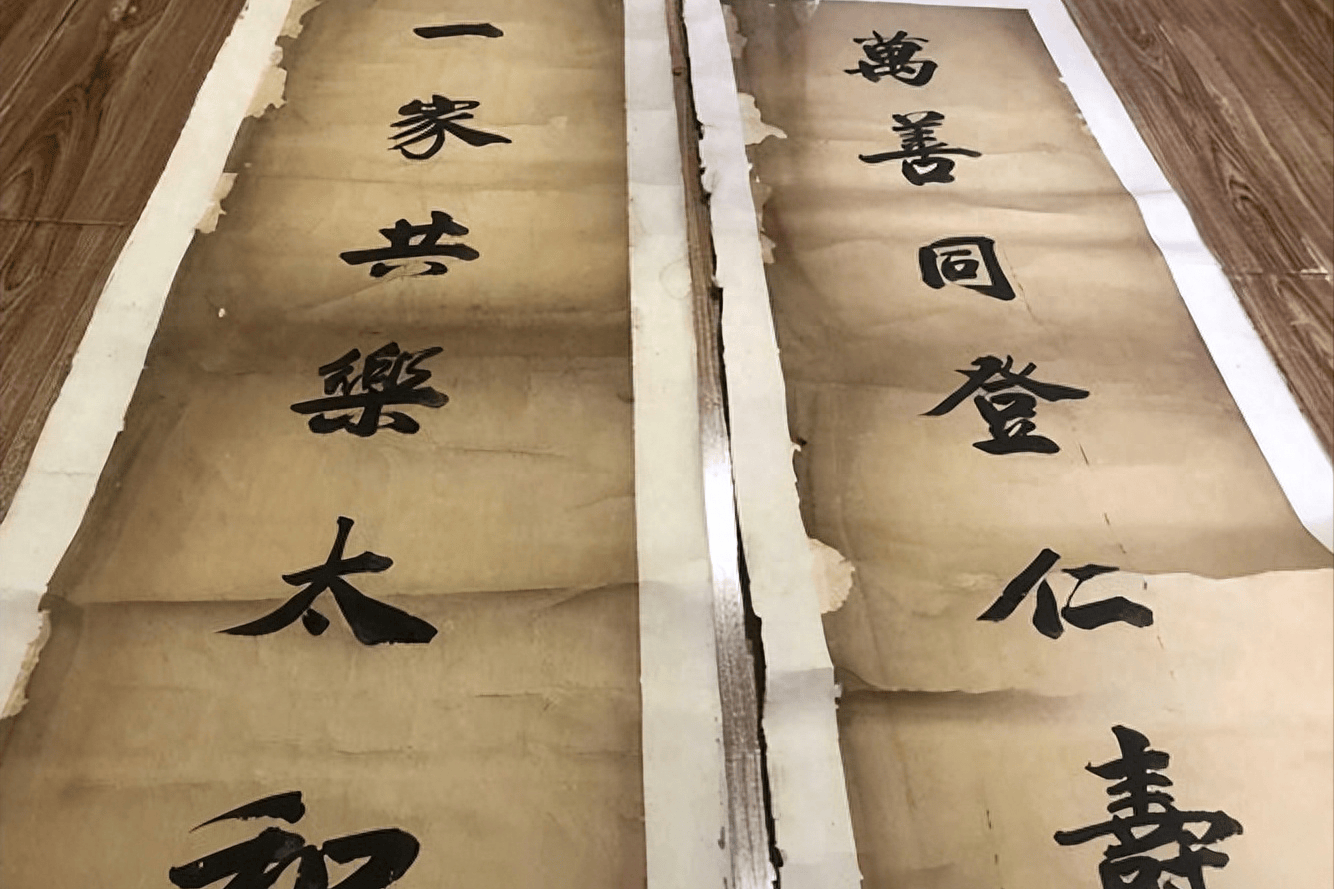 萬善同登仁壽
一家共樂太和